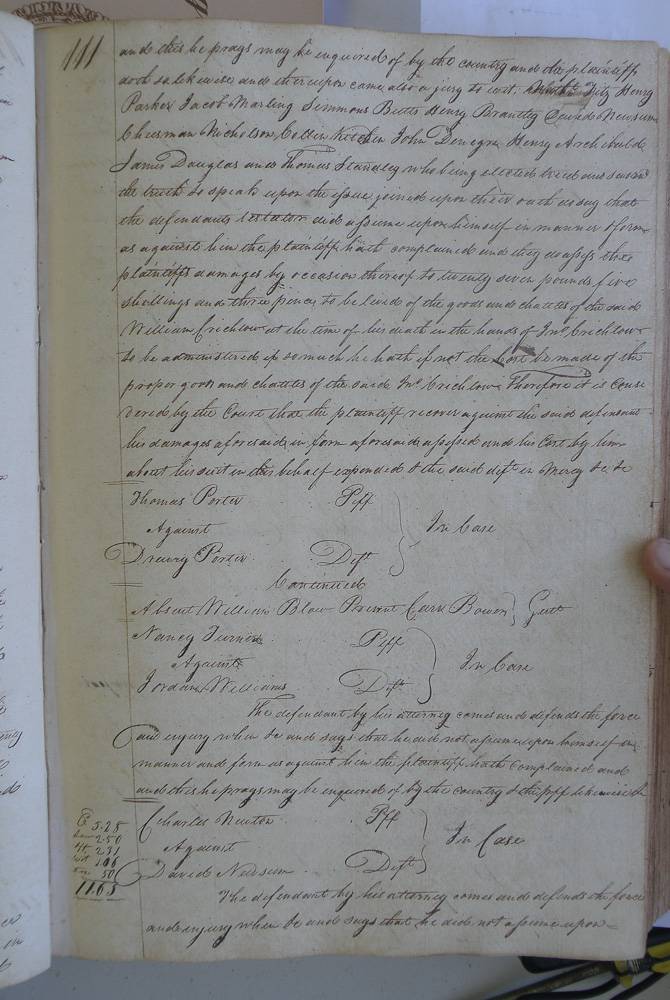 111
and this he prays may be enquired of by the country and the plaintiff
doth so likewise and thereupon came also a jury to wit. Fitz Henry
Parker Jacob Marling Simmons Betts Henry Brantley David Newsum
Cheesman Nicholson Kitchen John Henry Archibald
James Douglas and Thomas Standley who being elected tried and sworn
the truth to speak upon the issue joined upon their oath do say that
the defendants testator did assume upon himself in manner & form
as against him the plaintiff hath complained and they do assess the
plaintiffs damages by occasion thereof to twenty seven pounds five
shillings and three pence to be levied of the goods and chattels of the said
William Crichlow at the time of his death in the hands of Jno. Crichlow
to be administered if so much he hath if not the Cost be made of the
proper goods and chattels of the said Jno. Crichlow Therefore it is Consi
dered by the Court that the plaintiff recover against the said defendant
his damages aforesaid in form aforesaid assessed and his Cost by him
about his suit in this behalf expended & the said deft. in Mercy &c &c
Thomas Porter Plff
Against In Case
Drewry Porter Deft
Continued
Absent William Blow Present Carr Bowers Gent
Nancy Turner Plff
Against In Case
Jordan Williams Deft
The defendant by his attorney comes and defends the force
and injury when &c and says that he did not assume upon himself in
manner and form as against him the plaintiff hath Complained and
and this he prays may be enquired of by the country & the plff likewise
Charles Newton Plff
Against In Case
David Newsum Deft
5.28
2.50
2.31
1.06
50
11.65
The defendant by his attorney comes and defends the force
and injury when &c and says that he did not assume upon